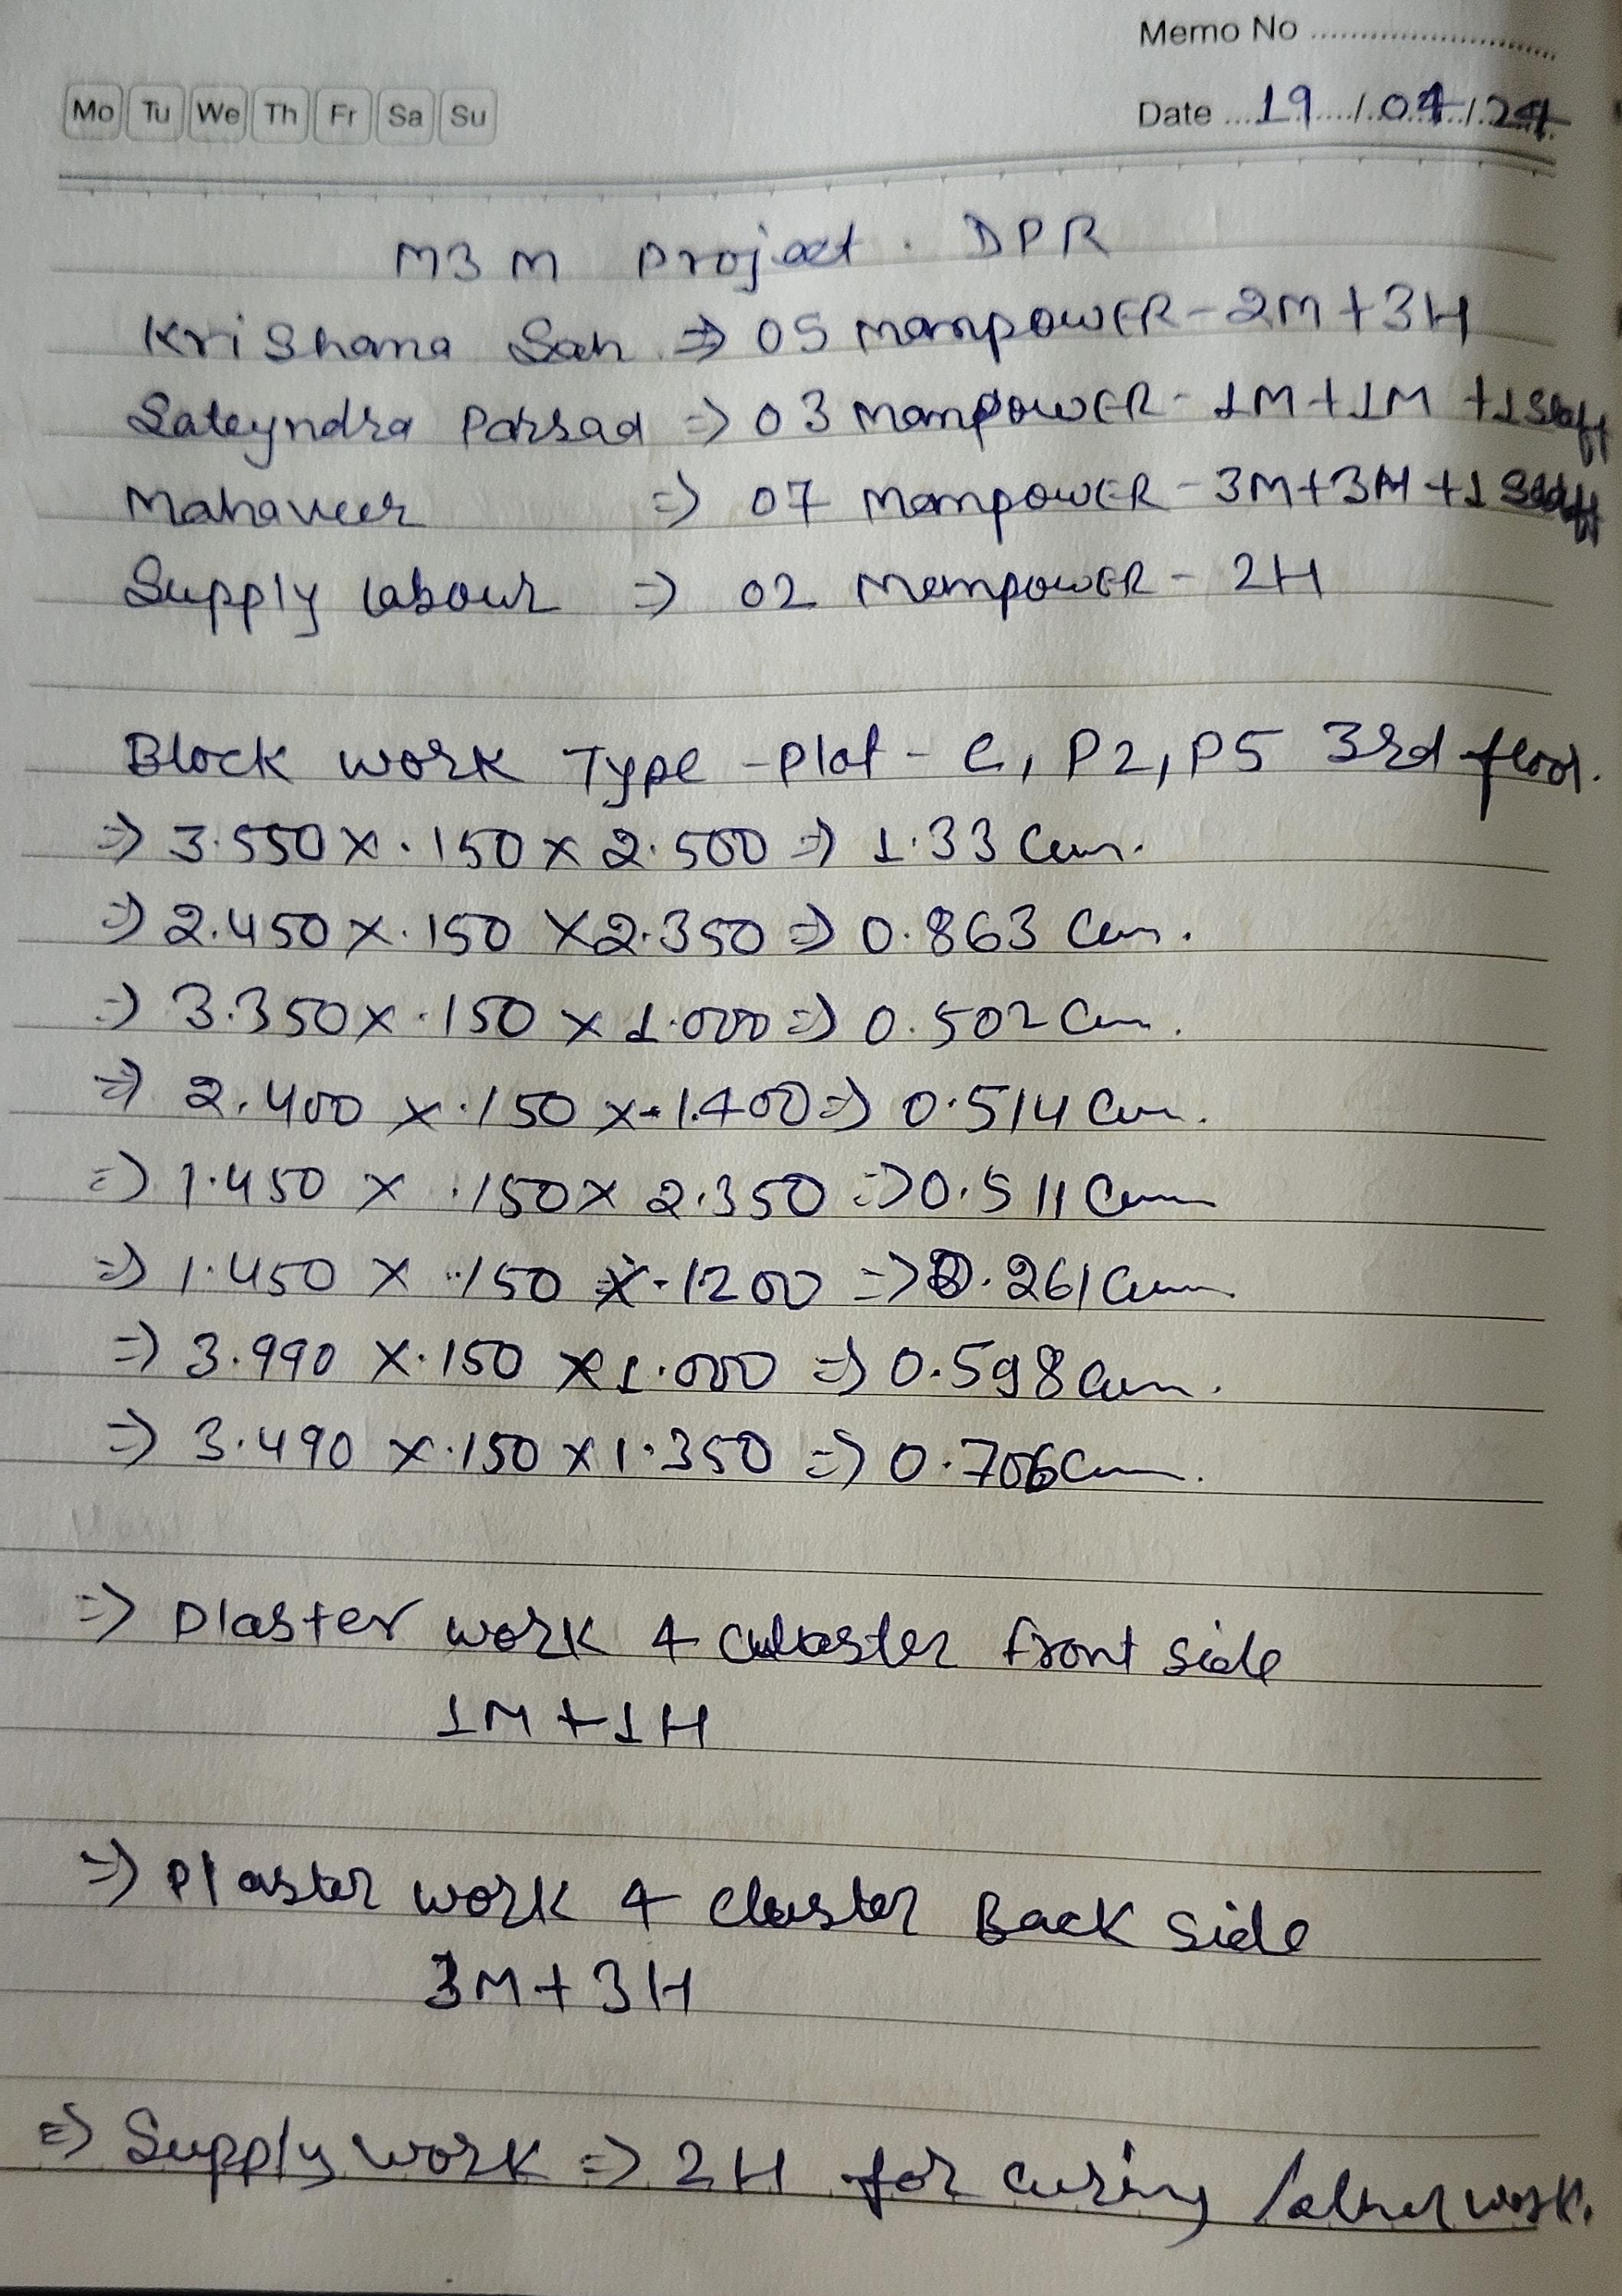 Memo No
Mo Tu We Th Fr Sa Su
Date 19/04/24
M3M Project. DPR
Krishana Sah => 05 manpowER - 2M+3H
Sateyndra Parsad => 03 manpowER - 1M+1M +1 Staff
Mahaveer => 07 manpowER - 3M+3H+1 Staff
Supply labour => 02 manpowER - 2H
Block work Type - Plot - C, P2, P5 3rd floor.
=> 3.550 x .150 x 2.500 => 1.33 Cum.
=> 2.450 x .150 x 2.350 => 0.863 Cum.
=> 3.350 x .150 x 1.000 => 0.502 Cum.
=> 2.400 x .150 x 1.400 => 0.514 Cum.
=> 1.450 x .150 x 2.350 => 0.511 Cum
=> 1.450 x .150 x 1.200 => 0.261 Cum.
=> 3.990 x .150 x 1.000 => 0.598 Cum.
=> 3.490 x .150 x 1.350 => 0.706 Cum.
=> Plaster work 4 cluster front side
1M+1H
=> Plaster work 4 cluster Back side
3M+3H
=> Supply work => 2H for curing /other work.